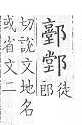 徒郎
切說文地名
或省文二